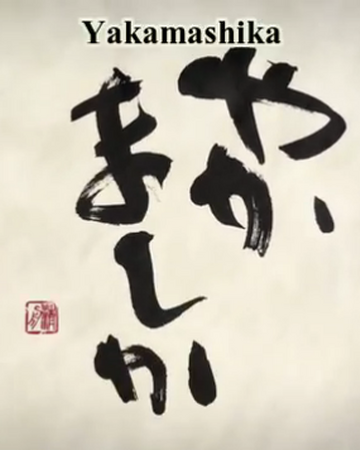 Yakamashika
やか
ましか